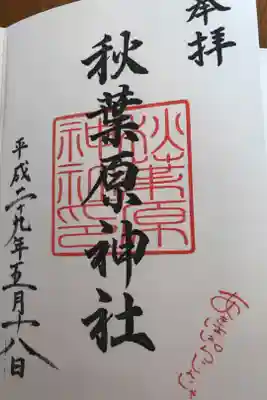 奉拝
秋葉原神社
秋葉原
神社印
平成二九年五月十八日